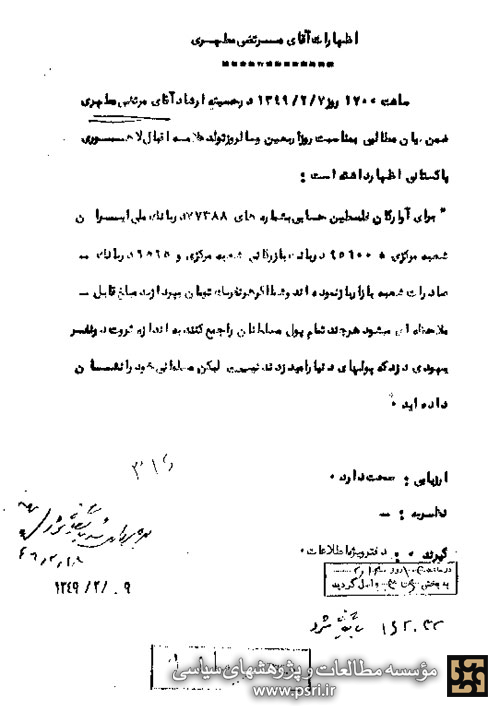 اظهارات آقای مرتضی مطهری
ساعت ۱۷۰۰ روز ۱۳۴۹/۲/۷ در حسینیه ارشاد آقای مرتضی مطهری
ضمن بیان مطالبی بمناسبت روز اربعین و سالروز تولد علامه اقبال لاهوری
پاکستانی اظهار داشته است :
" برای آوارگان فلسطین حسابی بشماره های ۷۷۳۸۸ در بانک ملی ایران
شعبه مرکزی و ۹۵۶۰۰ در بانک بازرگانی شعبه مرکزی و در بانک
صادرات شعبه بازار باز نموده اند و شما اگر هر نفر یک تومان بپردازید مبلغ قابل
ملاحظه ای میشود هر چند تمام پول مسلمانان را جمع کنند به اندازه ثروت دو نفر
یهودی دزد که پولهای دنیا را میدزدند نمیرسد لیکن مسلمانی خود را نشان
داده اید "
ارزیابی : صحت دارد ۰
نظریه : ــ
گیرنده : دفتر ویژه اطلاعات ۰
۱۳۴۹/۲/۰۹
به بخش واصل گردید
بایگانی شود
مؤسسه مطالعات و پژوهشهای سیاسی
www.psri.ir